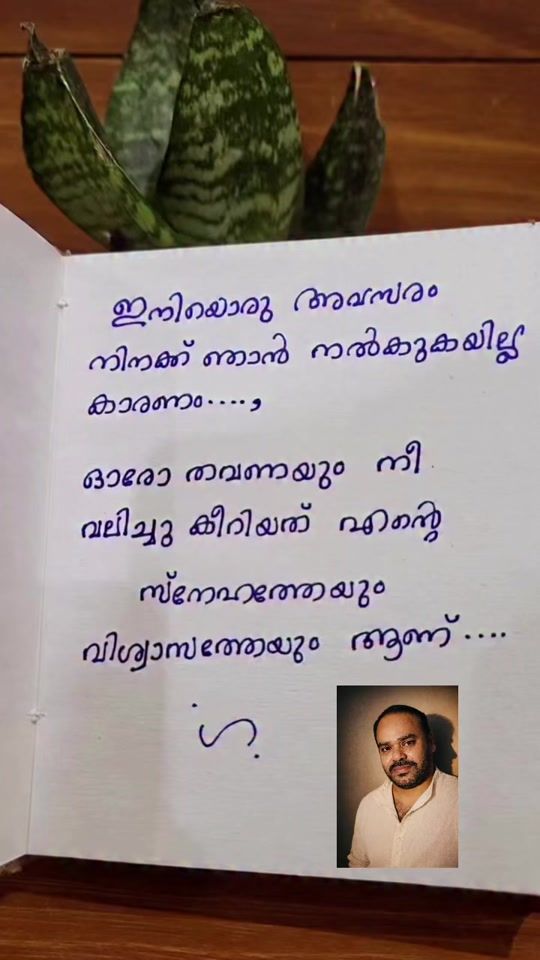 ഇനിയൊരു അവസരം
നിനക്ക് ഞാൻ നൽകുകയില്ല
കാരണം....,
ഓരോ തവണയും നീ
വലിച്ചു കീറിയത് എന്റെ
സ്നേഹത്തേയും
വിശ്വാസത്തേയും ആണ്....